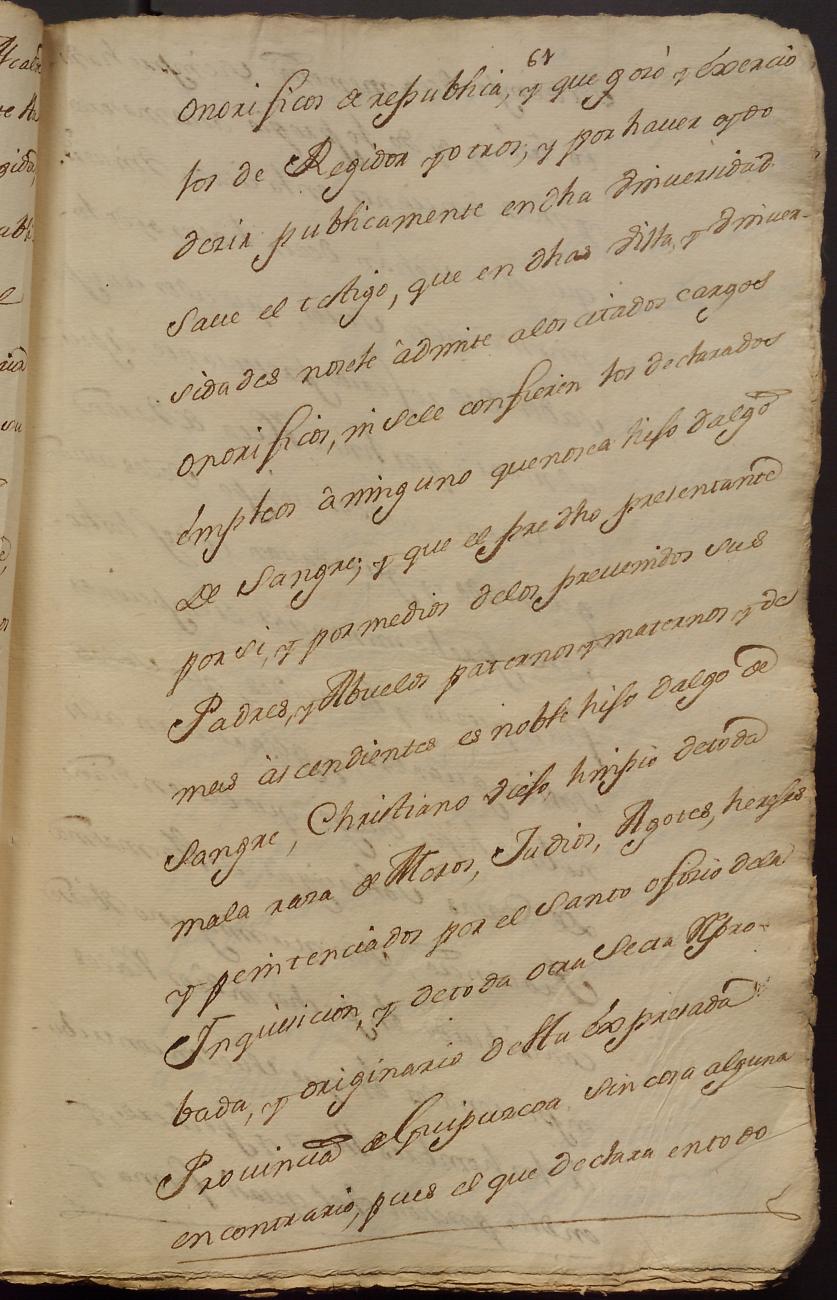 61
onorificos de republica, y que gozò y éxercio
los de Regidor y otros, y por haver oydo
dezir publicamente en dha vniuersidad
saue el testigo, que en dhas Villa, y vniuer-
sidades nosele âdmite alos citados cargos
onorificos, ni sele confieren los declarados
émpleos âninguno quenosea hijo dalgo
De Sangre; y que el predho presentante
por si, y por medios delos preuenidos sus
Padres, y Abuelos paternos y maternos y de
mas àscendientes es noble hijo dalgo de
Sangre, Christiano viejo, limpio detoda
mala raza de Moros, Judios, Agotes, herejes
y penitenciados por el Santo ofizio dela
Inquisicion, y detoda otra Secta Repro-
bada, y originario desta éxpresada
Prouincia de Guipuzcoa sin cosa alguna
en contrario, pues el que declara entodo